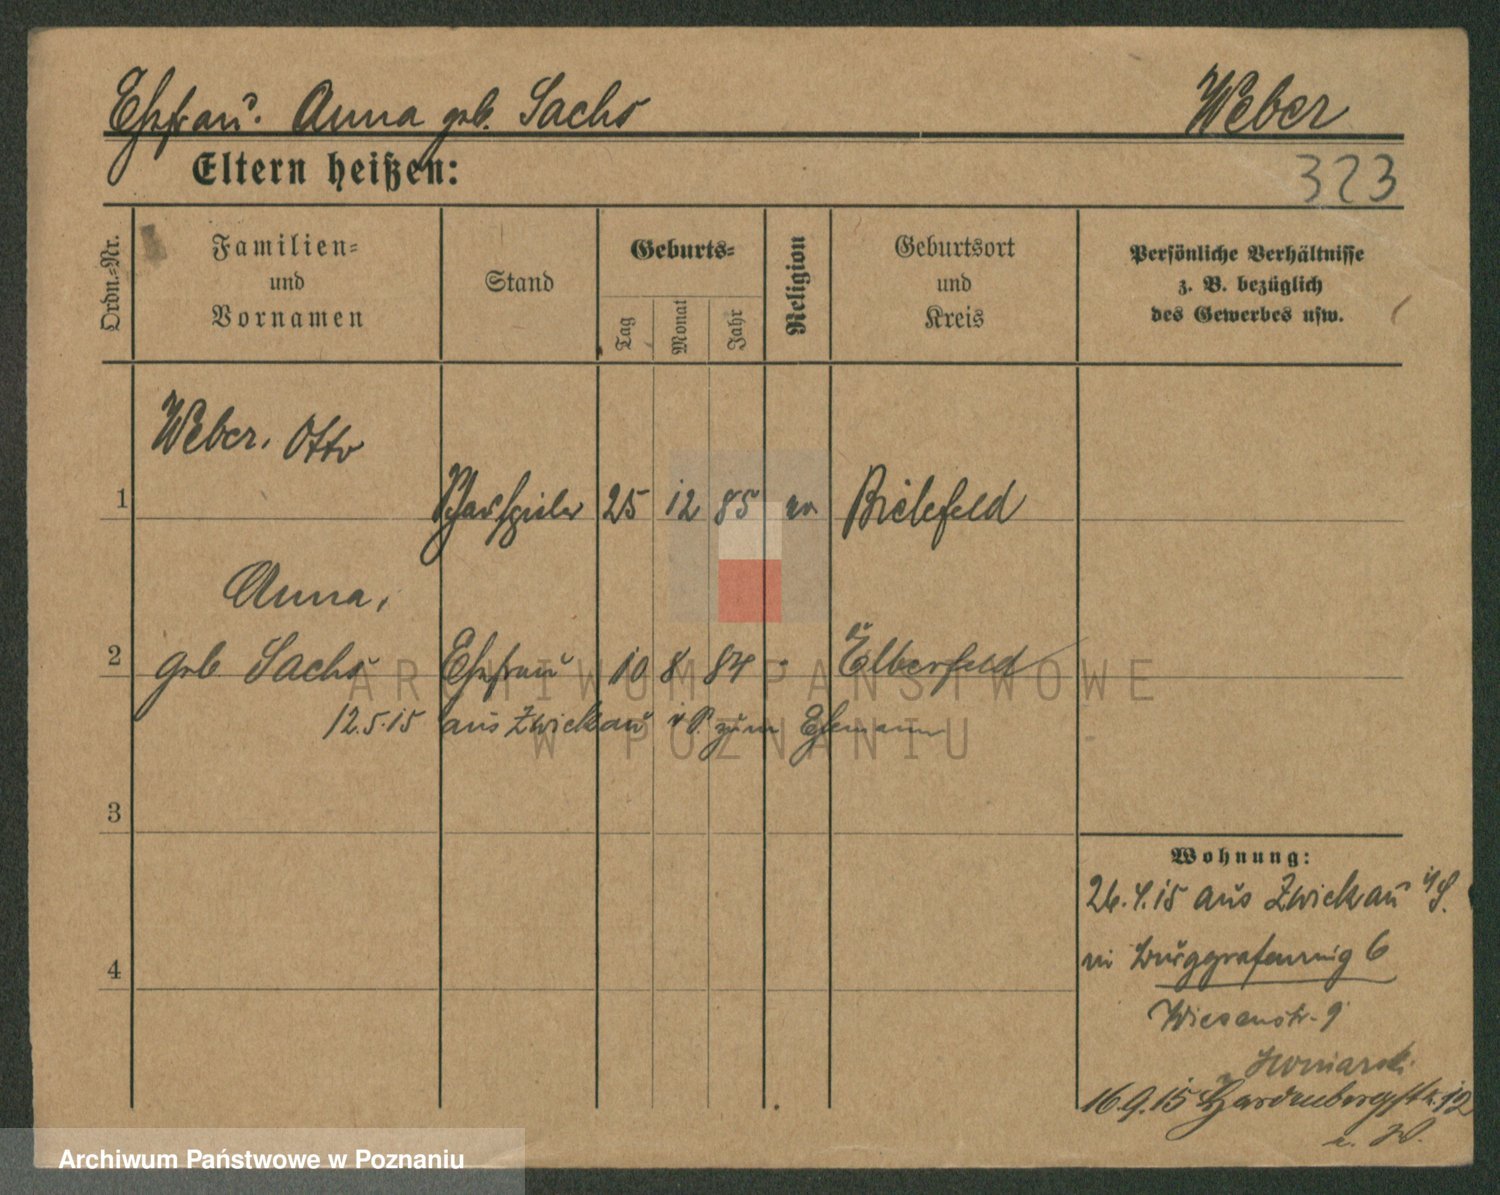 Ehefrau. Anna geb. Sachs Weber
Eltern heißen: 323
Ordn.-Nr.
Familien-
und
Vornamen
Stand
Geburts-
Tag
Monat
Jahr
Religion
Geburtsort
und
Kreis
Persönliche Verhältnisse
z. B. bezüglich
des Gewerbes usw.
Weber, Otto
1 Schauspieler 25 12 85 ev Bielefeld
Anna,
2 geb Sachs Ehefrau 10 8 84 " Elberfeld
12.5.15 aus Zwickau zum Ehemann
3
4
Wohnung:
26.4.15 aus Zwickau i/S.
in Burggrafenring 6
Wiesenstr. 9
16.9.15 Hardenbergstr. 12
ARCHIWUM PAŃSTWOWE
W POZNANIU
Archiwum Państwowe w Poznaniu